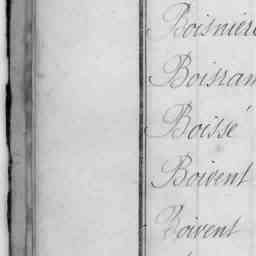 Boisnière
Boisram
Boissé
Boivent
Boivent